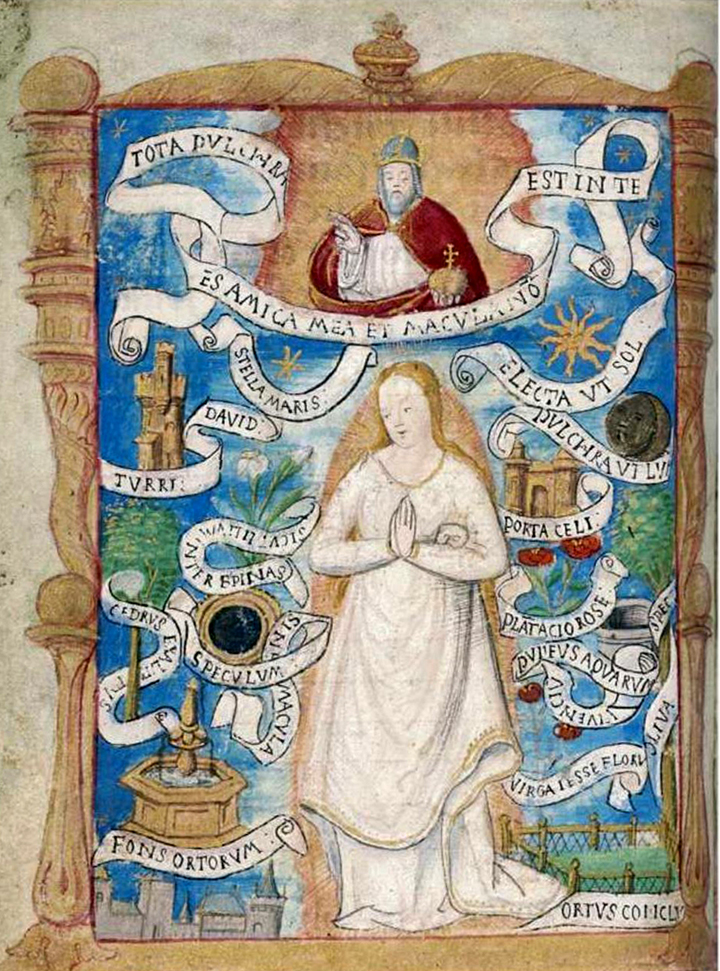 TOTA
EST IN TE
ES AMICA MEA ET MACVLA NŌ
STELLA MARIS
ELECTA VT SOL
DAVID
TVRRI
PVLCHRA VT LV
PORTA CELI
INTER EPINAS
PLATACIO ROSE
CEDRVS EXALT
SPECVLVM SINE MACVLA
PVTEVS AQVARVM
VIVENCIV
OLIVA
VIRGA IESSE FLORV
FONS ORTORVM
ORTVS CONCLV